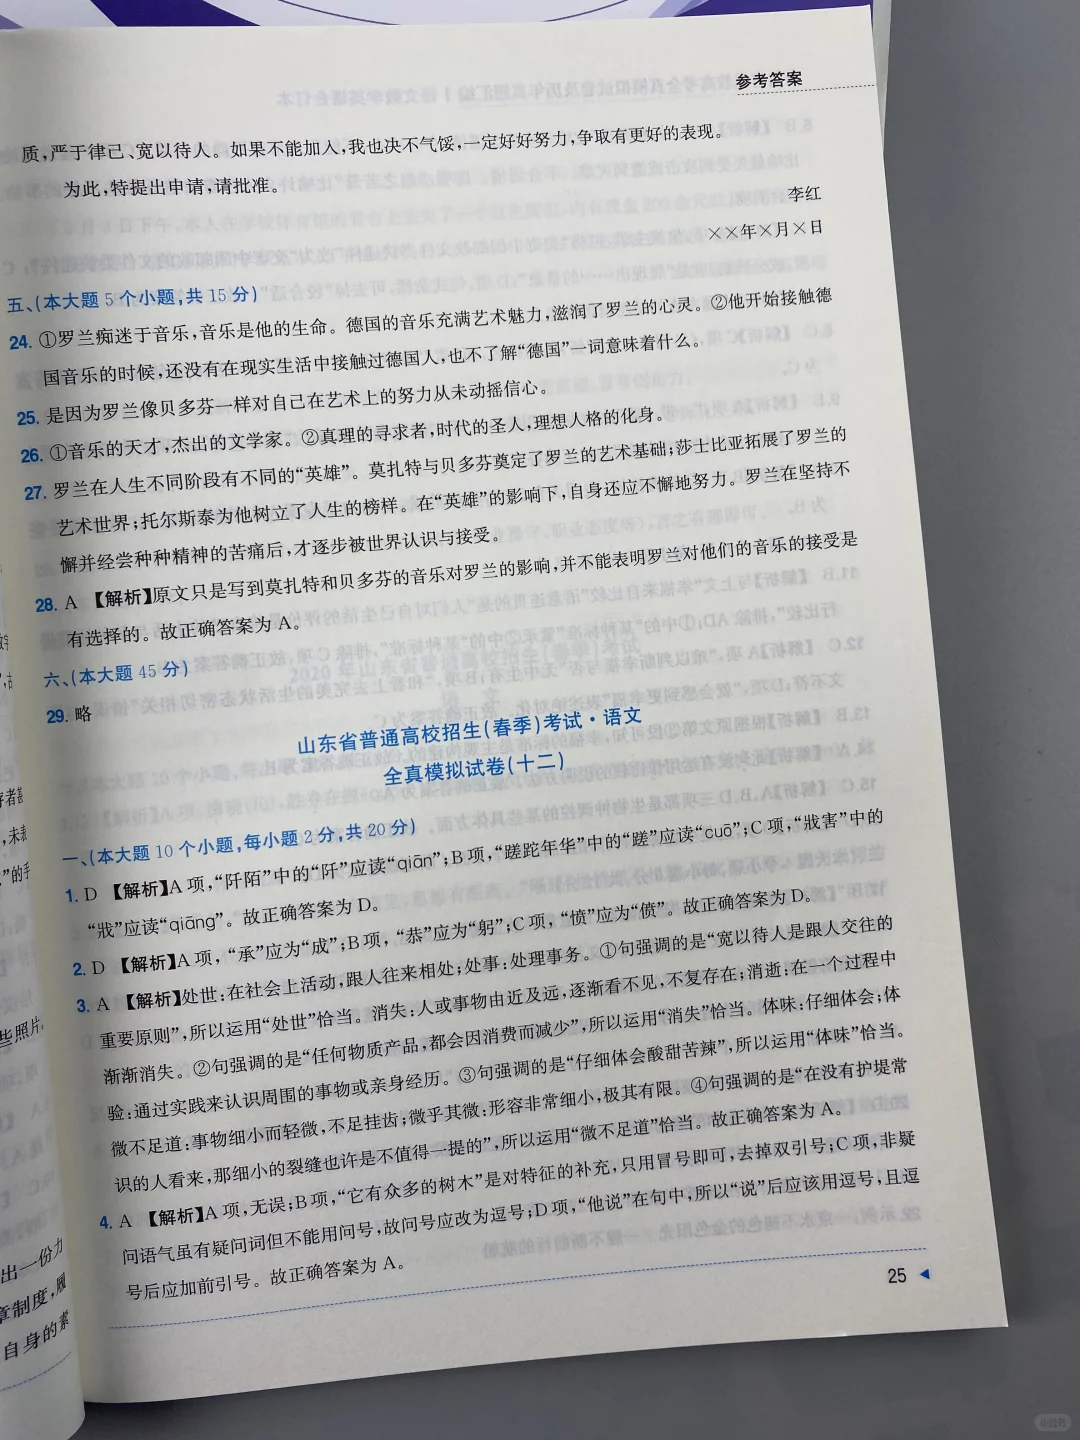 参考答案
质,严于律己、宽以待人。如果不能加入,我也决不气馁,一定好好努力,争取有更好的表现。
为此,特提出申请,请批准。
李红
××年×月×日
五、(本大题 5 个小题,共 15 分)
24. ①罗兰痴迷于音乐,音乐是他的生命。德国的音乐充满艺术魅力,滋润了罗兰的心灵。②他开始接触德
国音乐的时候,还没有在现实生活中接触过德国人,也不了解“德国”一词意味着什么。
25. 是因为罗兰像贝多芬一样对自己在艺术上的努力从未动摇信心。
26. ①音乐的天才,杰出的文学家。②真理的寻求者,时代的圣人,理想人格的化身。
27. 罗兰在人生不同阶段有不同的“英雄”。莫扎特与贝多芬奠定了罗兰的艺术基础;莎士比亚拓展了罗兰的
艺术世界;托尔斯泰为他树立了人生的榜样。在“英雄”的影响下,自身还应不懈地努力。罗兰在坚持不
懈并经尝种种精神的苦痛后,才逐步被世界认识与接受。
28. A 【解析】原文只是写到莫扎特和贝多芬的音乐对罗兰的影响,并不能表明罗兰对他们的音乐的接受是
有选择的。故正确答案为 A。
六、(本大题 45 分)
29. 略
山东省普通高校招生(春季)考试·语文
全真模拟试卷(十二)
一、(本大题 10 个小题,每小题 2 分,共 20 分)
1. D 【解析】A 项,“阡陌”中的“阡”应读“qiān”;B 项,“蹉跎年华”中的“蹉”应读“cuō”;C 项,“戕害”中的
“戕”应读“qiāng”。故正确答案为 D。
2. D 【解析】A 项,“承”应为“成”;B 项,“恭”应为“躬”;C 项,“愤”应为“偾”。故正确答案为 D。
3. A 【解析】处世:在社会上活动,跟人往来相处;处事:处理事务。①句强调的是“宽以待人是跟人交往的
重要原则”,所以运用“处世”恰当。消失:人或事物由近及远,逐渐看不见,不复存在;消逝:在一个过程中
渐渐消失。②句强调的是“任何物质产品,都会因消费而减少”,所以运用“消失”恰当。体味:仔细体会;体
验:通过实践来认识周围的事物或亲身经历。③句强调的是“仔细体会酸甜苦辣”,所以运用“体味”恰当。
微不足道:事物细小而轻微,不足挂齿;微乎其微:形容非常细小,极其有限。④句强调的是“在没有护堤常
识的人看来,那细小的裂缝也许是不值得一提的”,所以运用“微不足道”恰当。故正确答案为 A。
4. A 【解析】A 项,无误;B 项,“它有众多的树木”是对特征的补充,只用冒号即可,去掉双引号;C 项,非疑
问语气虽有疑问词但不能用问号,故问号应改为逗号;D 项,“他说”在句中,所以“说”后应该用逗号,且逗
号后应加前引号。故正确答案为 A。
25
些照片
出一份力
章制度,履
自身的素
小红书